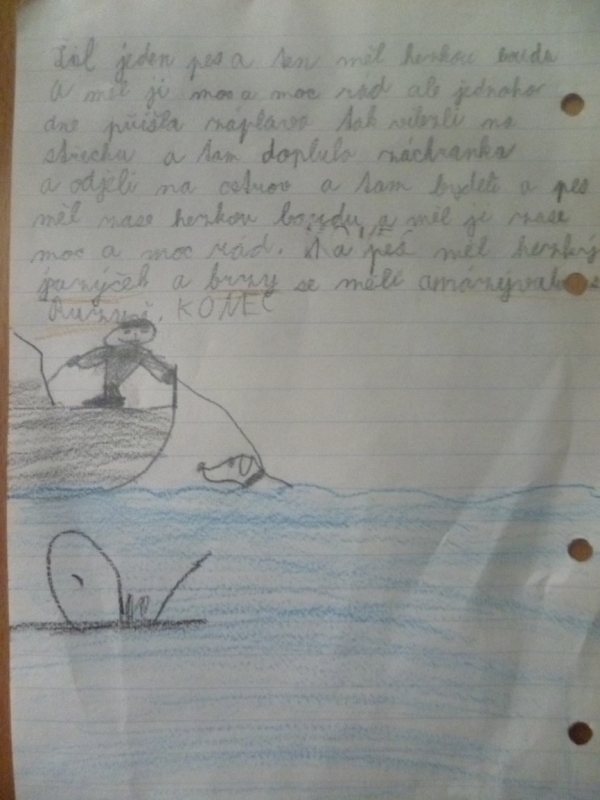 Žil jeden pes a ten měl hezkou boudu
a měl ji moc a moc rád ale jednoho
dne přišla naplavea tak vilezli na
střechu a tam doplula náchranka
a odjeli na ostrov a tam bydleli a pes
měl zase hezkou boudu a měl ji zase
moc a moc rád. A pes měl hezký
páníček a brzy se měli
KONEC